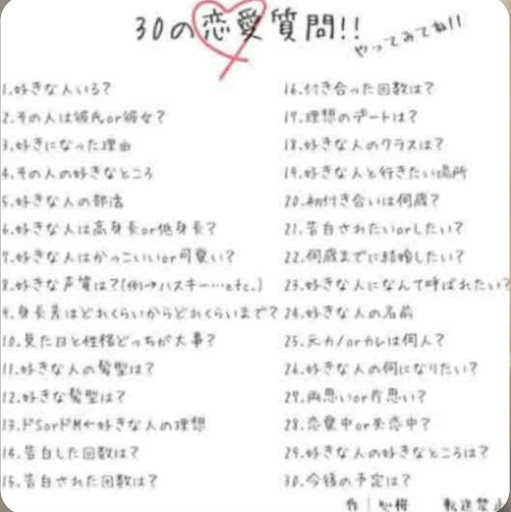 30の恋愛質問!!
やってみてね!!
1.好きな人いる?
2.その人は彼氏or彼女?
3.好きになった理由
4.その人の好きなところ
5.好きな人の部活
6.好きな人は高身長or低身長?
7.好きな人はかっこいいor可愛い?
8.好きな声質は?(例→ハスキー…etc.)
9.身長差はどれくらいからどれくらいまで?
10.見た目と性格どっちが大事?
11.好きな人の髪型は?
12.好きな髪型は?
13.ドSorドM←好きな人の理想
14.告白した回数は?
15.告白された回数は?
16.付き合った回数は?
17.理想のデートは?
18.好きな人のクラスは?
19.好きな人と行きたい場所
20.初付き合いは何歳?
21.告白されたいorしたい?
22.何歳までに結婚したい?
23.好きな人になんて呼ばれたい?
24.好きな人の名前
25.元カノorカレは何人?
26.好きな人の何になりたい?
27.両思いor片思い?
28.恋愛中or失恋中?
29.好きな人の好きなところは?
30.今後の予定は?
作| 転送禁止